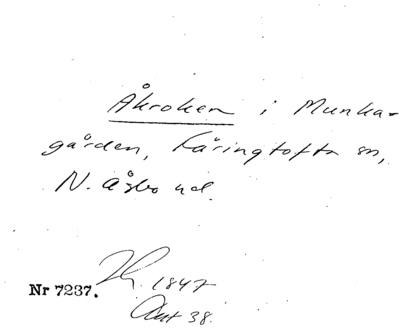 Åkroken i Munka-
gården, Käringtofta sn,
N. Åsbo hd.
Nr 7237. 1847
Akt 38.